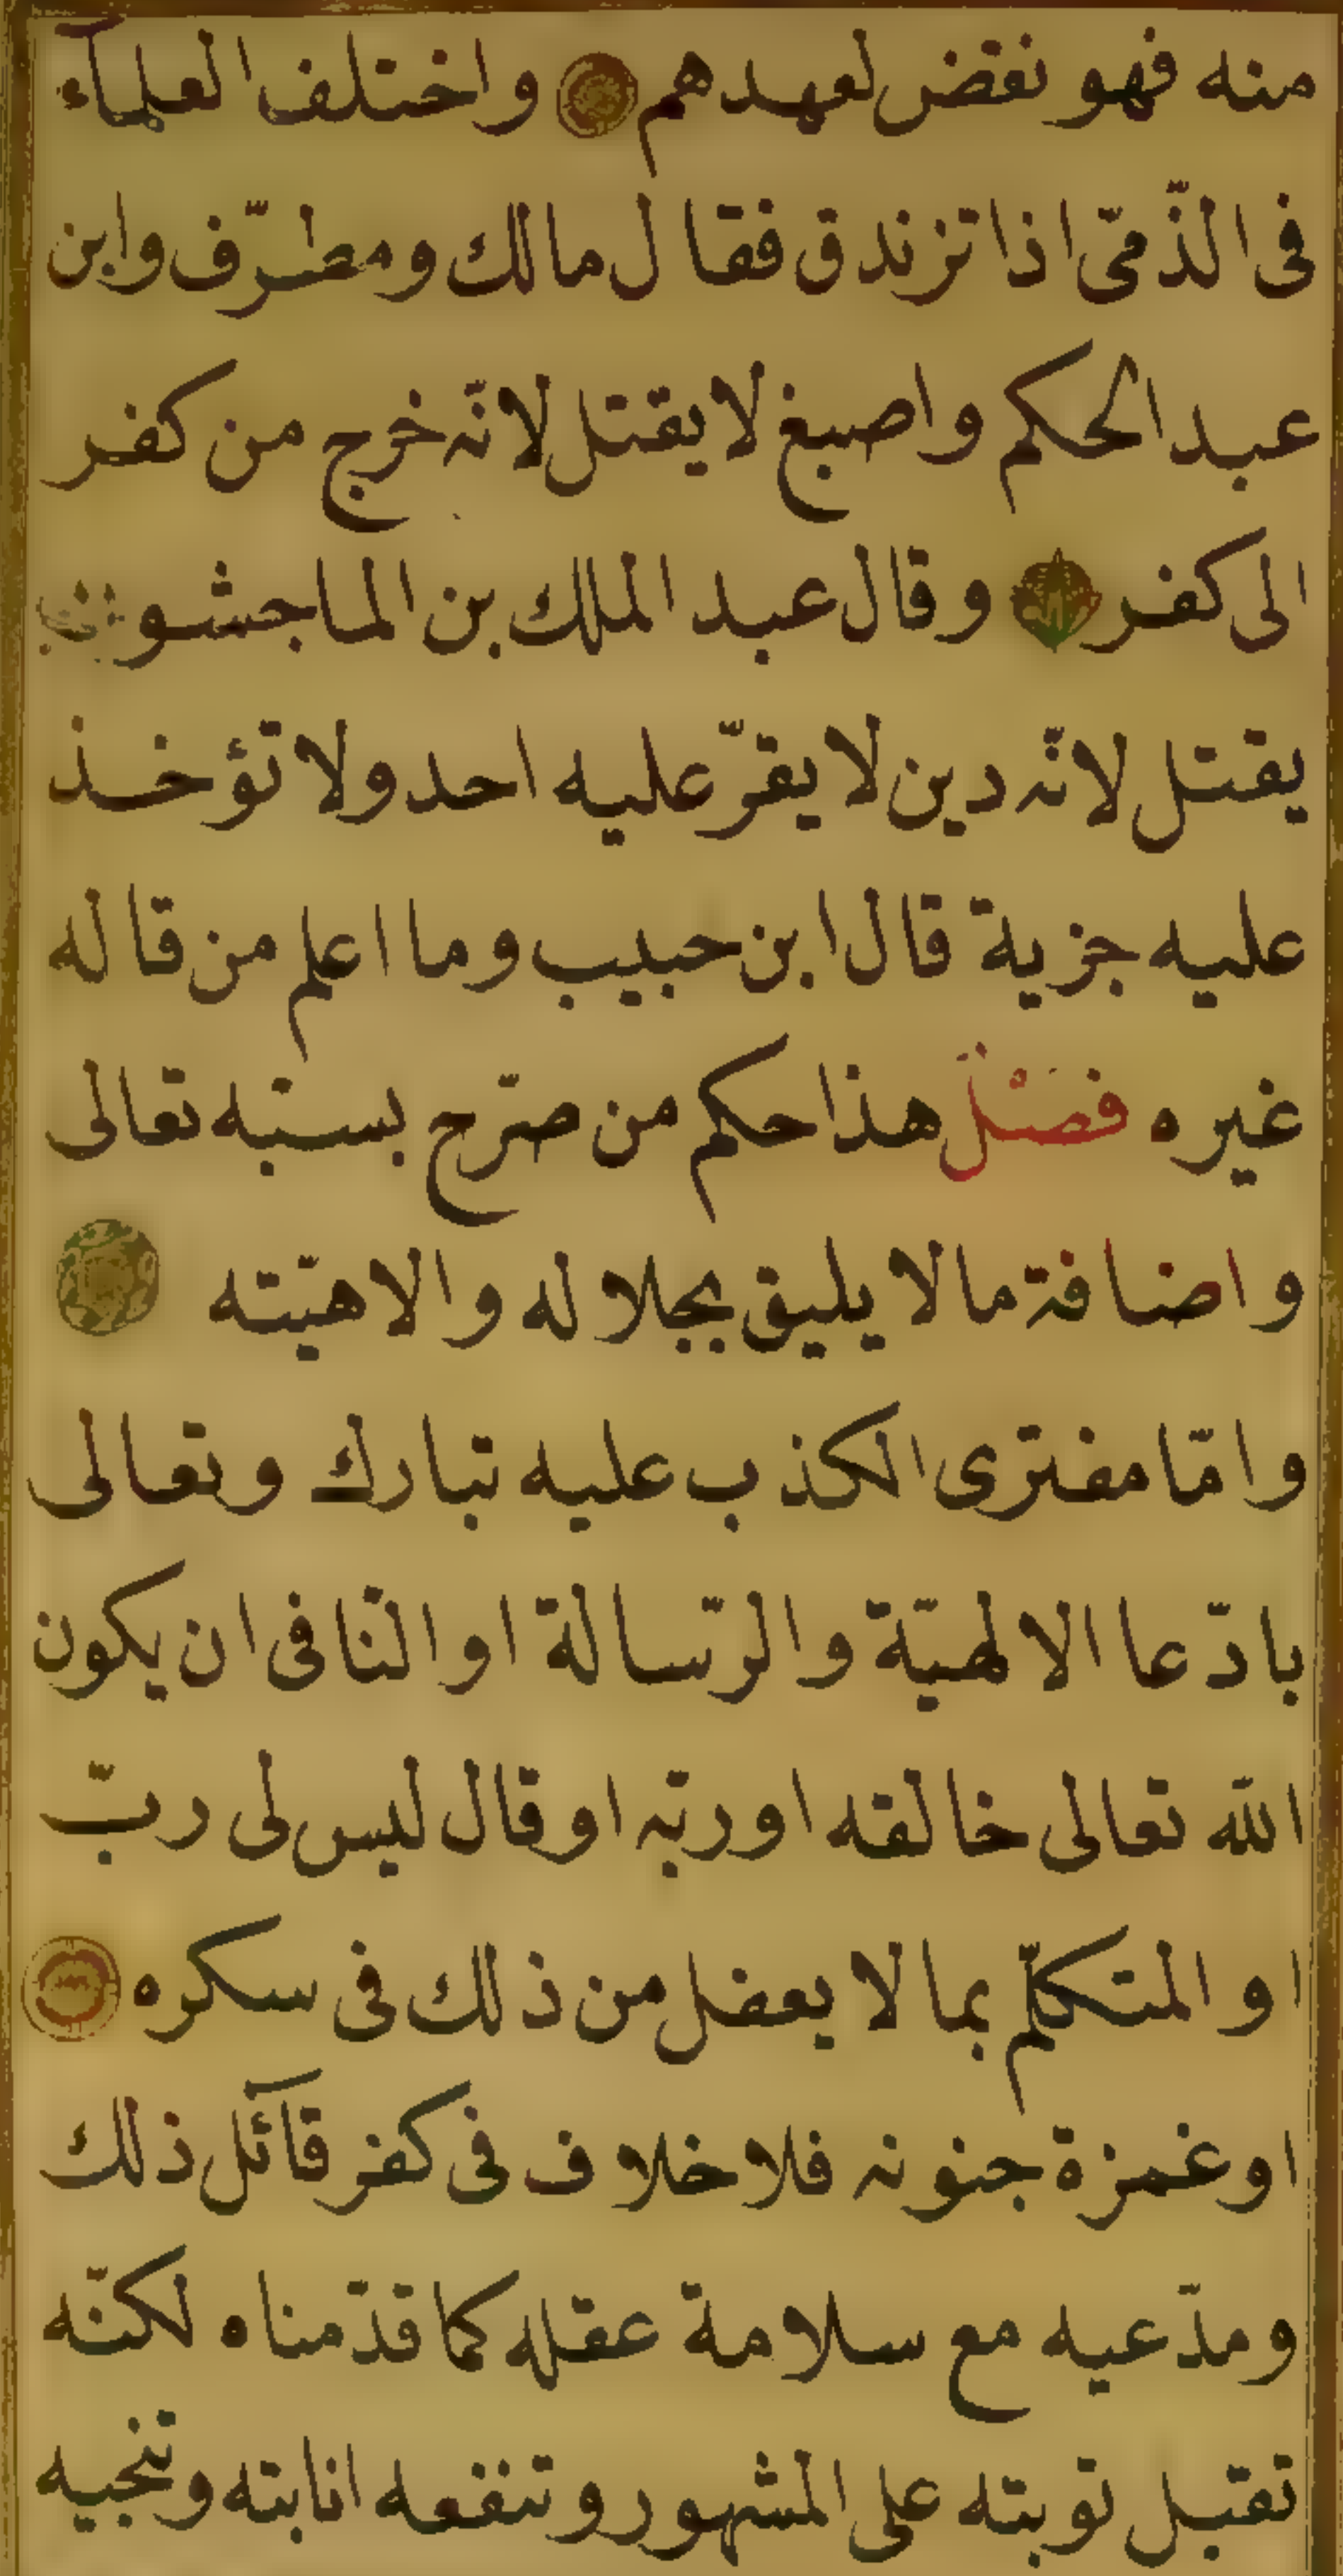 منه فهو نقض لعهدهم واختلف العلمآء
فى الذّمّى اذا تزندق فقال مالك ومطرّف وابن
عبد الحكم واصبغ لا يقتل لانّه خرج من كفر
الى كفر وقال عبد الملك بن الماجشون
يقتل لانّه دين لا يقرّ عليه احد ولا تؤخذ
عليه جزية قال ابن حبيب وما اعلم من قاله
غيره فصْلٌ هذا حكم من صرّح بسبّه تعالى
واضافة ما لا يليق بجلاله والاهيّته
وامّا مفترى الكذب عليه تبارك وتعالى
بادّعا الالهيّة والرّسالة او النّافى ان يكون
الله تعالى خالقه او ربّه او قال ليس لى ربّ
او المتكلّم بما لا يعفل من ذلك فى سكره
او غمزة جنونه فلا خلاف فى كفر قآئل ذلك
ومدّعيه مع سلامة عقله كما قدّمناه لكنّه
تقبل توبته على المشهور وتنفعه انابته وتنجيه